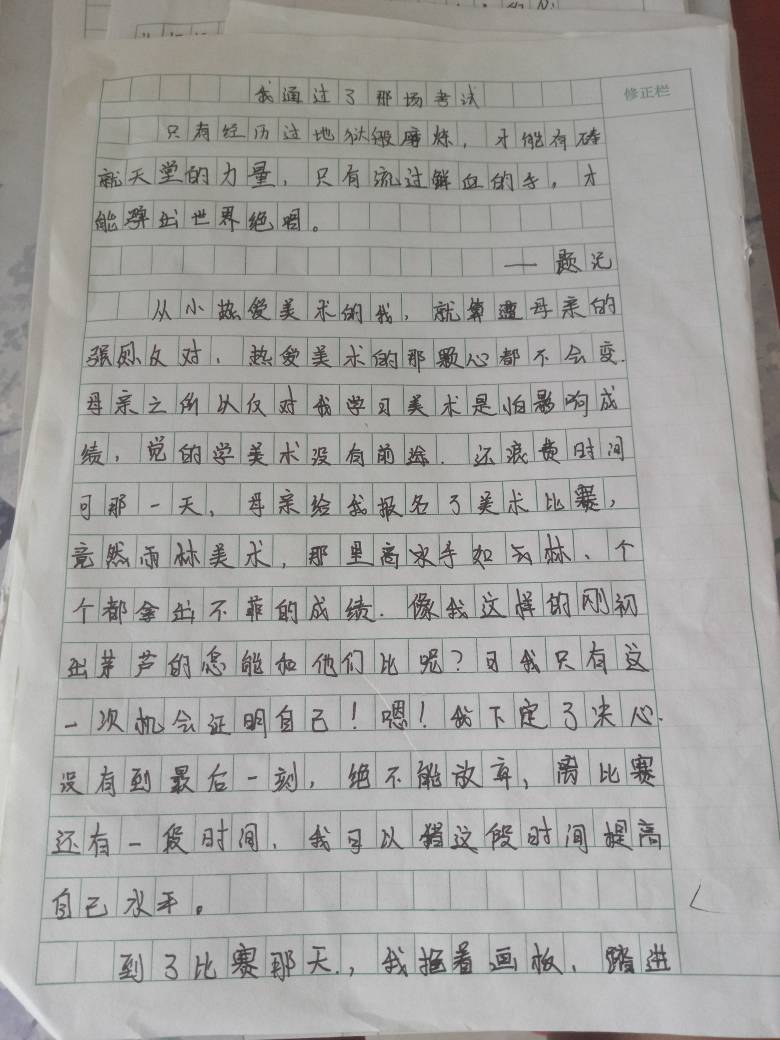 我通过了那场考试
修正栏
只有经历过地狱般磨炼，才能有碰
就天堂的力量，只有流过鲜血的手，才
能弹出世界绝唱。
——题记
从小热爱美术的我，就算遭母亲的
强烈反对，热爱美术的那颗心都不会变.
母亲之所以反对我学习美术是怕影响成
绩，觉的学美术没有前途.还浪费时间
可那一天，母亲给我报名了美术比赛，
竟然雨林美术，那里高水手如云林、个
个都拿出不菲的成绩.像我这样的刚初
出茅芦的怎能和他们比呢？可我只有这
一次机会证明自己！嗯！我下定了决心.
没有到最后一刻，绝不能放弃，离比赛
还有一段时间，我可以借这段时间提高
自己水平。
到了比赛那天，我抱着画板，踏进